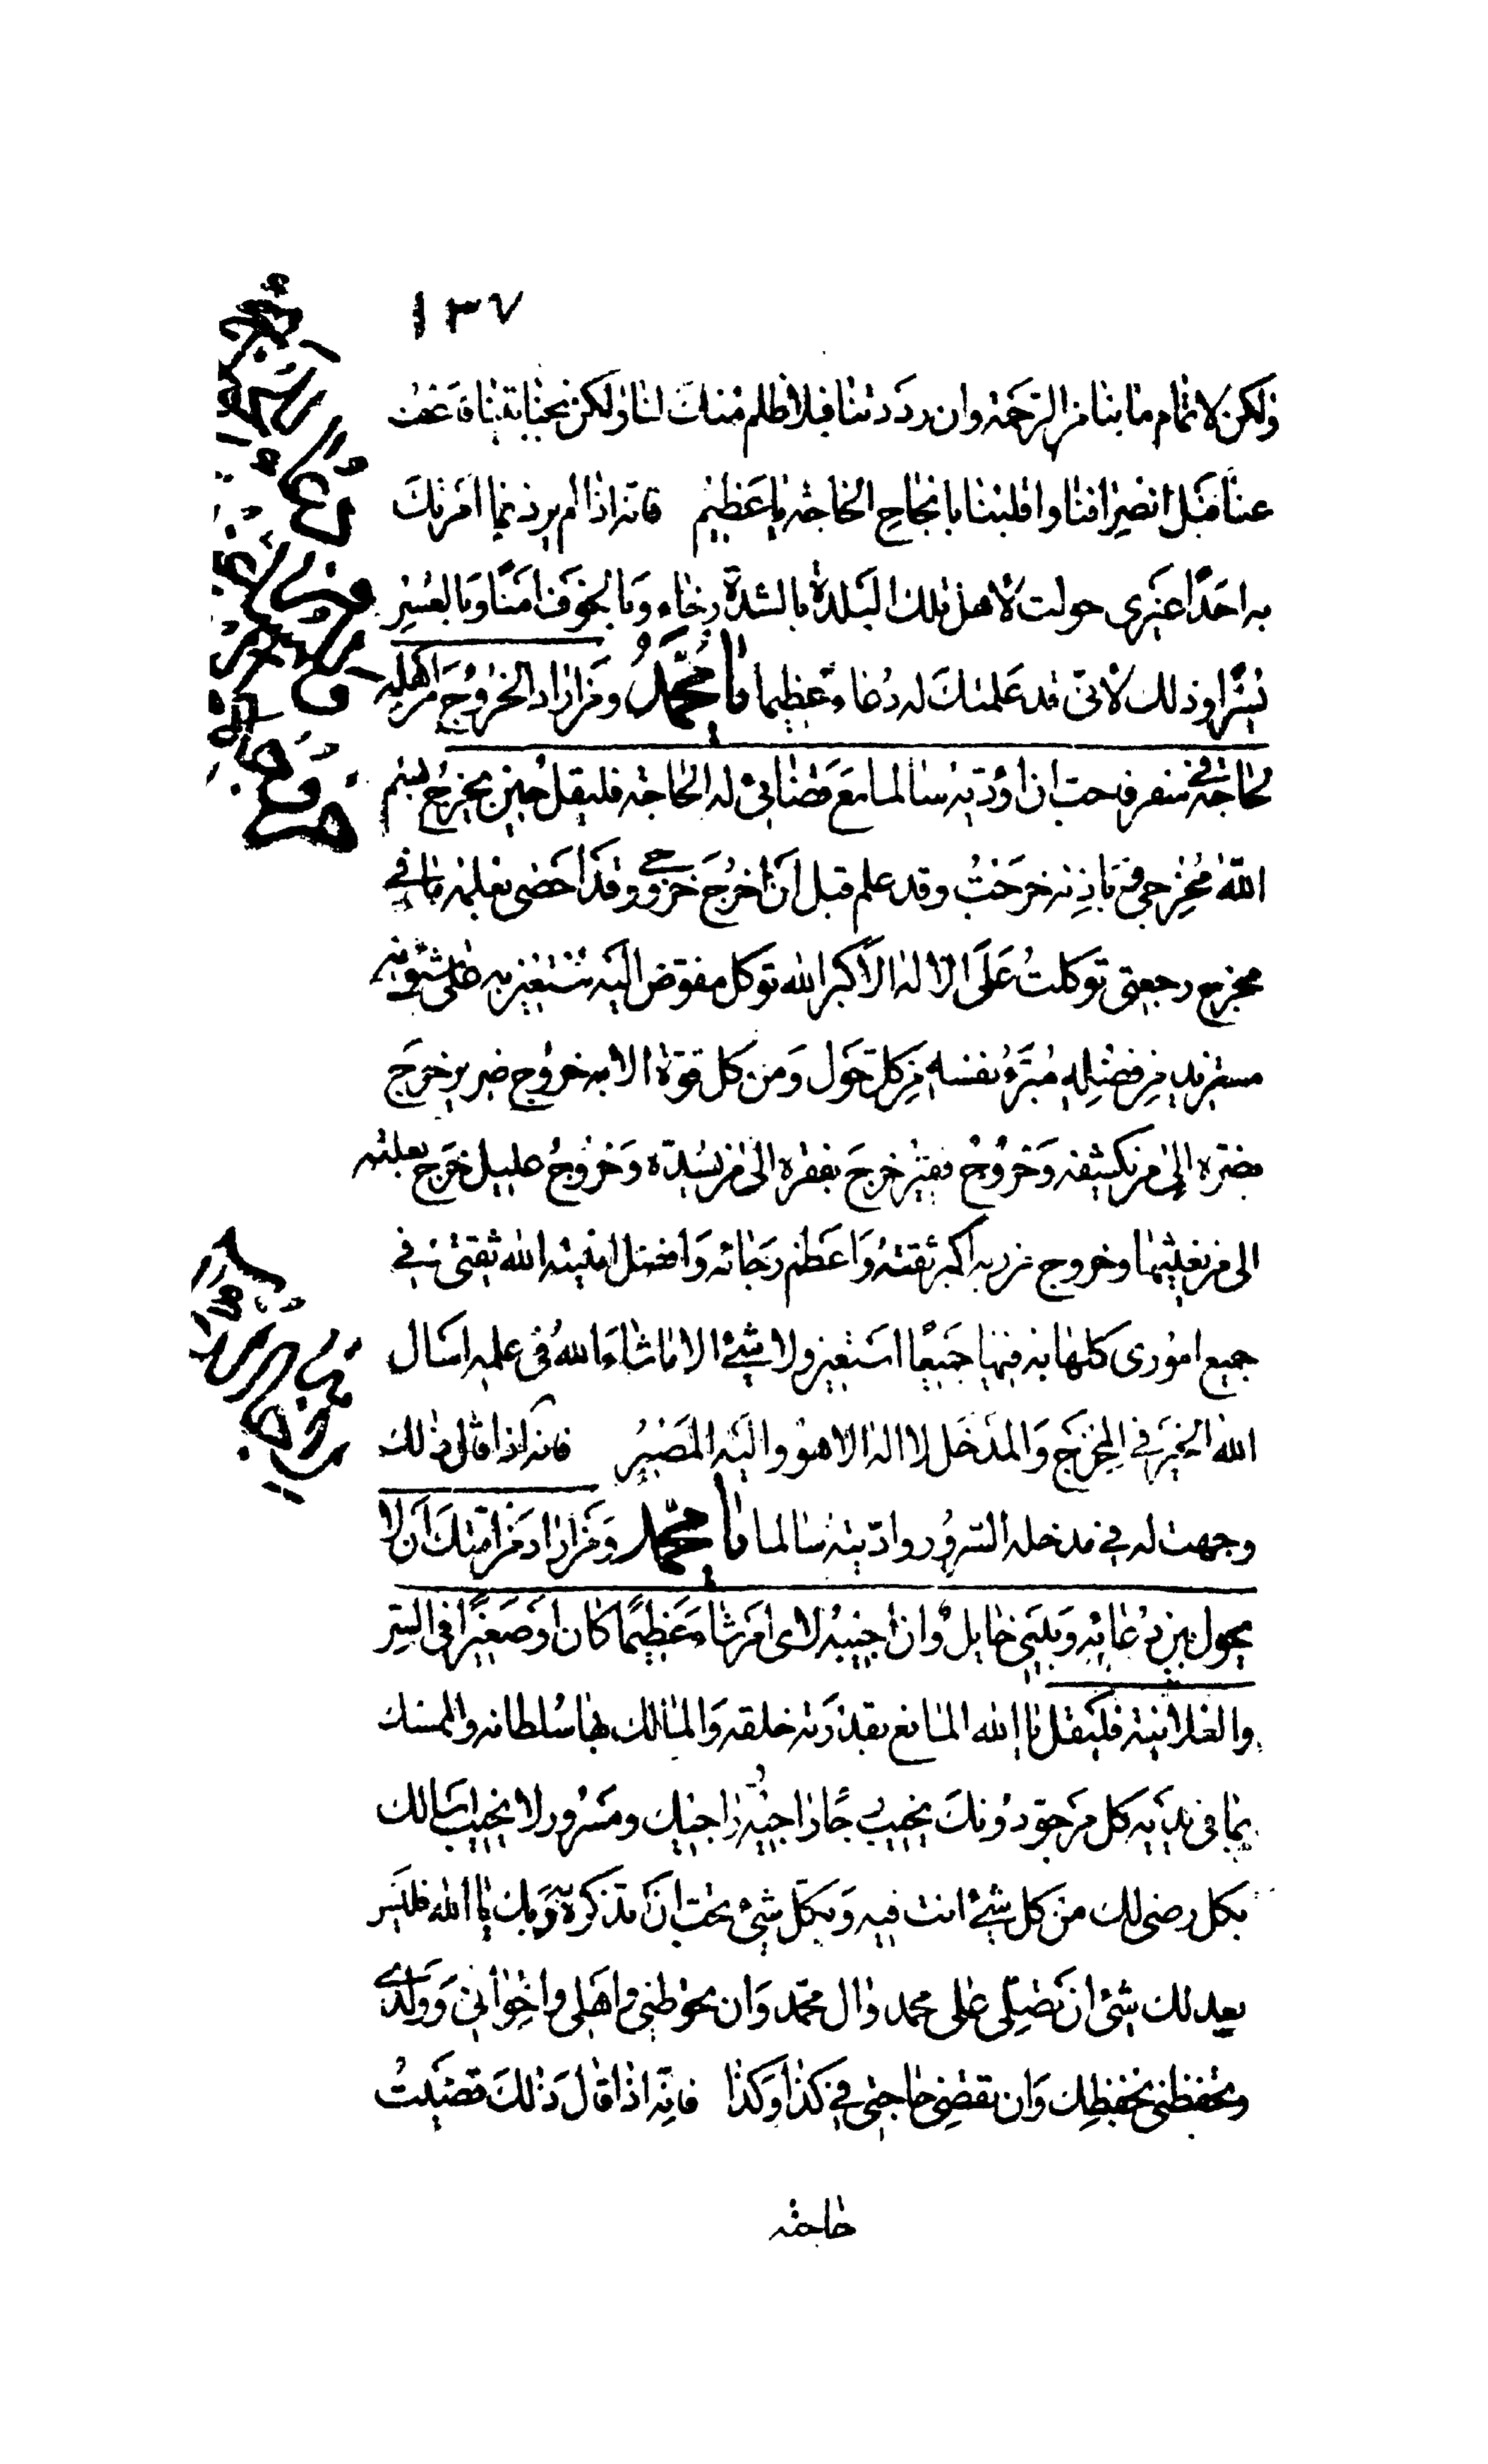 ١٣٧
ولكن لاتمام ما بنا من الرحمة وان رددتنا فبلا ظلم منك لنا ولكن بجنايتنا فاعف
عنا قبل انصرافنا واقلبنا بانجاح الحاجة يا عظيم فانه اذا لم يرد بما امرتك
به احدًا غيري حولت لاهل تلك البلدة بالشدة رخاء وبالخوف امنًا وبالعسر
يسرًا وذلك لاني قد علمتك له دعاء عظيما يا محمد ومن اراد الخروج من اهله
لحاجة في سفر فاحب ان اؤديه سالما مع قضائي له الحاجة فليقل حين يخرج بسم
الله مخرجي وباذنه خرجت وقد علم قبل ان اخرج خروجي وقد احصى بعلمه ما في
مخرجي ورجعتي توكلت على الاله الاكبر الله توكل مفوض اليه مستعين به على شؤنه
مستزيد من فضله مبرئ نفسه من كل حول ومن كل قوة الا به خروج ضرير خرج
بضره الى من يكشفه وخروج فقير خرج بفقره الى من يسده وخروج عليل خرج بعلته
الى من يغيثها وخروج من ربه اكبر ثقته واعظم رجائه وافضل امنيته الله ثقتي في
جميع اموري كلها به فيها جميعا استعين ولا شئ الا ما شاء الله في علمه اسال
الله الخير في المخرج والمدخل لا اله الا هو واليه المصير فانه اذا قال ذلك
وجهت له في مدخله السرور واديته سالما يا محمد ومن اراد من امتك ان لا
يحول بين دعائه وبيني حايل وان اجيبه لاي امر شاء عظيمًا كان او صغيرًا في السر
والعلانية فليقل يا الله المانع بقدرته خلقه والمالك بها سلطانه والمتسلط
بما في يديه كل مرجو دونك يخيب رجاء راجيه وراجيك مسرور لا يخيب اسالك
بكل رضى لك من كل شئ انت فيه وبكل شئ تحب ان تذكر به وبك يا الله فليس
يعدلك شئ ان تصلي على محمد وال محمد وان تحوطني واهلي واخواني وولدي
وتحفظني بحفظك وان تقضي حاجتي في كذا وكذا فانه اذا قال ذلك قضيت
حاجته